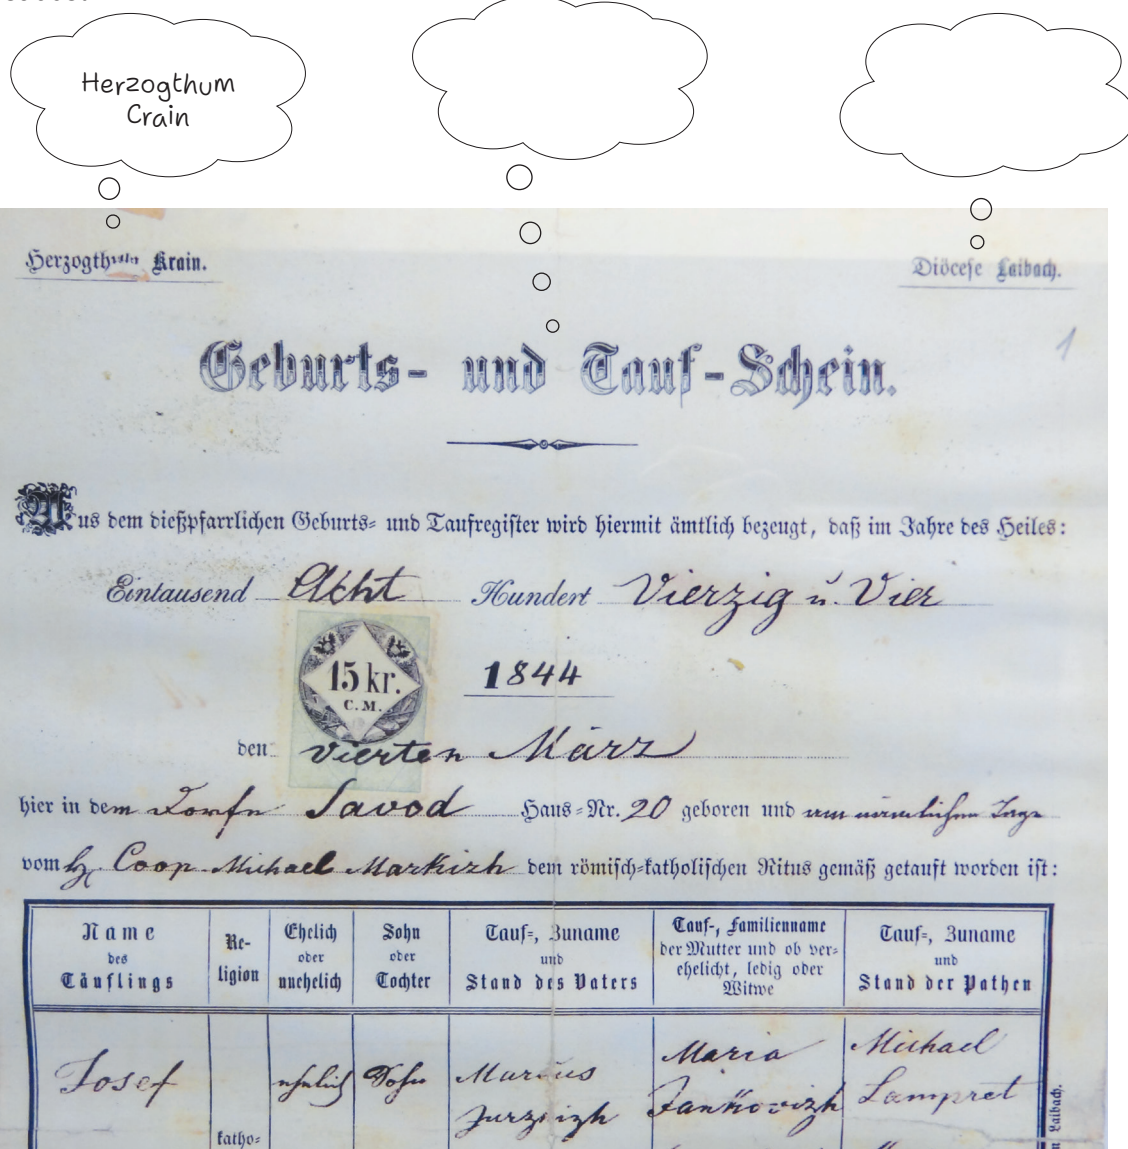 Herzogthum
Crain
Herzogthum Krain.
Diöcese Laibach.
1
Geburts- und Tauf-Schein.
Aus dem dießpfarrlichen Geburts- und Taufregister wird hiermit ämtlich bezeugt, daß im Jahre des Heiles:
Eintausend Acht Hundert Vierzig u. Vier
15 kr.
C. M.
1844
den vierten März
hier in dem Dorfe Savod Haus-Nr. 20 geboren und am nämlichen Tage
vom H. Coop Michael Markizh dem römisch-katholischen Ritus gemäß getauft worden ist:
Name
des
Täuflings
Re-
ligion
Ehelich
oder
unehelich
Sohn
oder
Tochter
Tauf-, Zuname
und
Stand des Vaters
Tauf-, Familienname
der Mutter und ob ver-
ehelicht, ledig oder
Witwe
Tauf-, Zuname
und
Stand der Pathen
Josef
katho-
ehelich
Sohn
Marcus
Maria
Jankovizh
Michael
Lampret
Laibach.